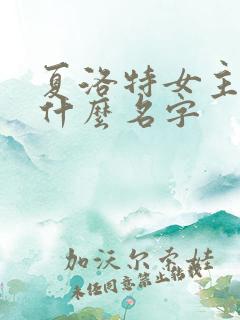 夏洛特女主
什麼名字
加沃尔秀娃
未经同意禁止转载